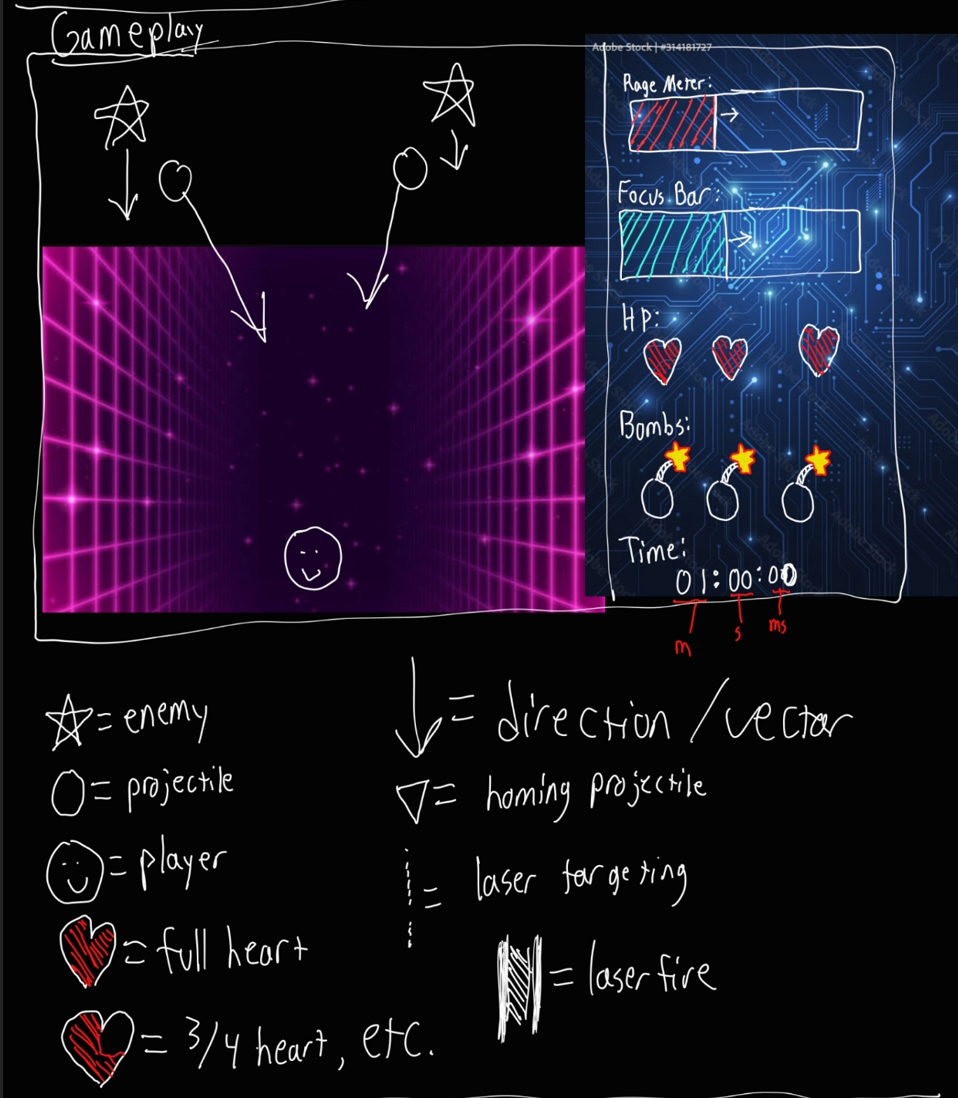 Gameplay
Adobe Stock | #314181727
Rage Meter:
Focus Bar:
HP:
Bombs:
Time:
01:00:00
m s ms
= enemy
= projectile
= player
= full heart
= 3/4 heart, etc.
= direction/vector
= homing projectile
= laser targeting
= laser fire